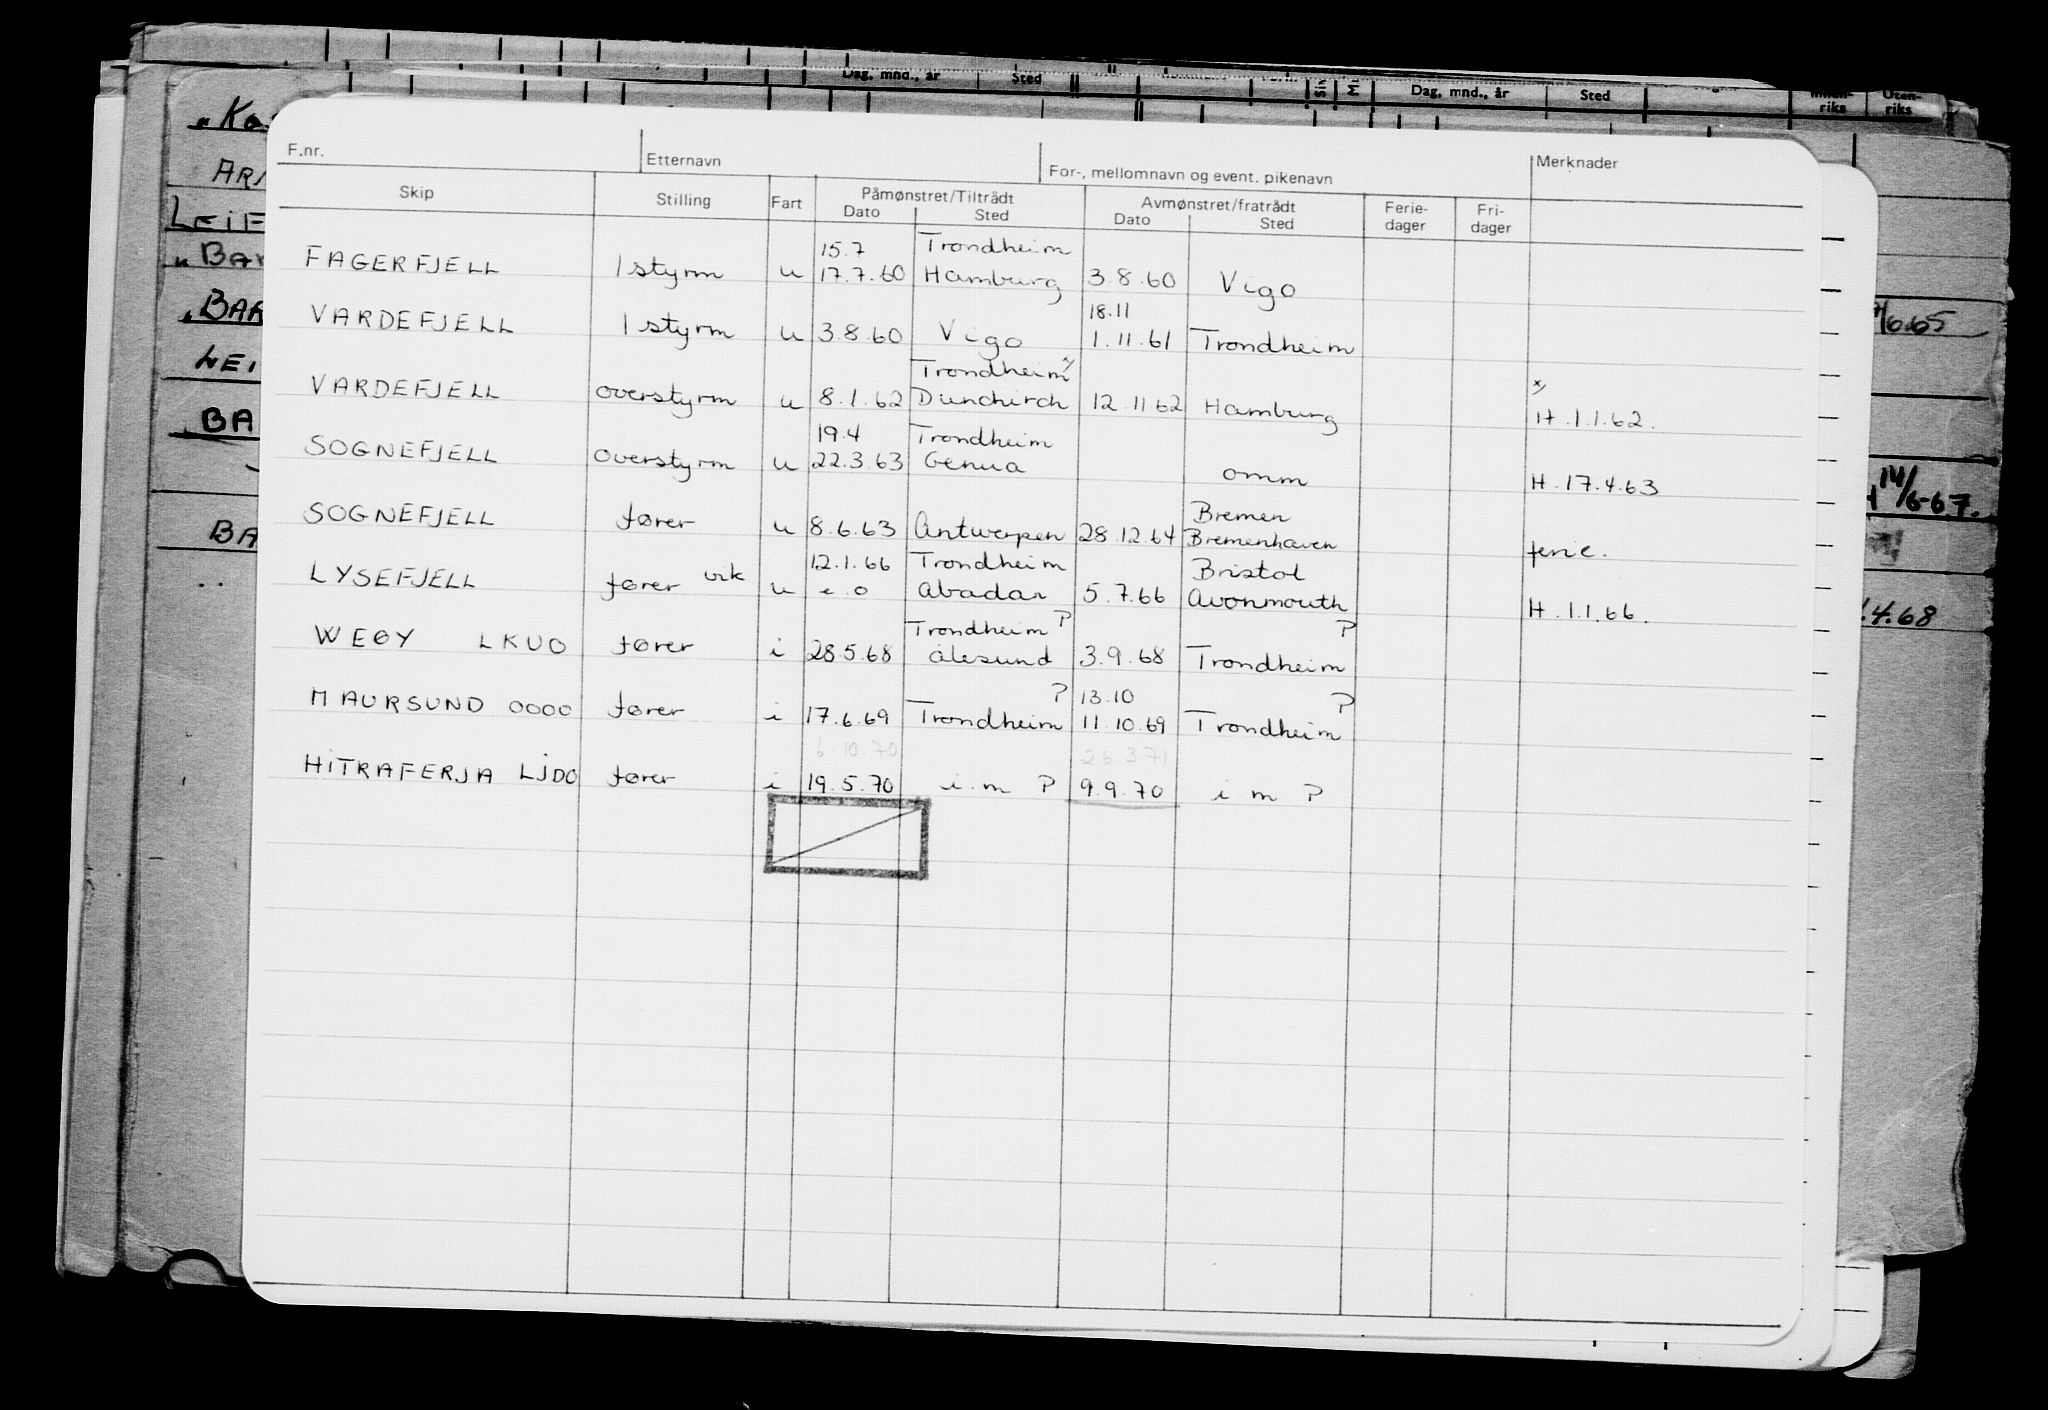 Dag, mnd., år Sted Dag, mnd., år Sted riks Uten-riks
F.nr. Etternavn For-, mellomnavn og event. pikenavn Merknader
Skip Stilling Fart Påmønstret/Tiltrådt Avmønstret/fratrådt Ferie- Fri-
Dato Sted Dato Sted dager dager
15.7 Trondheim
FAGERFJELL 1 styrm u 17.7.60 Hamburg 3.8.60 Vigo
18.11
VARDEFJELL 1 styrm u 3.8.60 Vigo 1.11.61 Trondheim
Trondheim x) x)
VARDEFJELL overstyrm u 8.1.62 Dunchirch 12.11.62 Hamburg H.1.1.62.
19.4 Trondheim
SOGNEFJELL overstyrm u 22.3.63 Genua omm H.17.4.63
Bremen
SOGNEFJELL fører u 8.6.63 Antwerpen 28.12.64 Bremenhaven ferie.
12.1.66 Trondheim Bristol
LYSEFJELL fører vik u e o Abadan 5.7.66 Avonmouth H.1.1.66.
Trondheim P P
WEØY LKUO fører i 28.5.68 Ålesund 3.9.68 Trondheim
P 13.10 P
MAURSUND OOOO fører i 17.6.69 Trondheim 11.10.69 Trondheim
6.10.70 26.3.71
HITRAFERJA LJDO fører i 19.5.70 i m P 9.9.70 i m P
LEIF
6.65
14/6-67.
.4.68